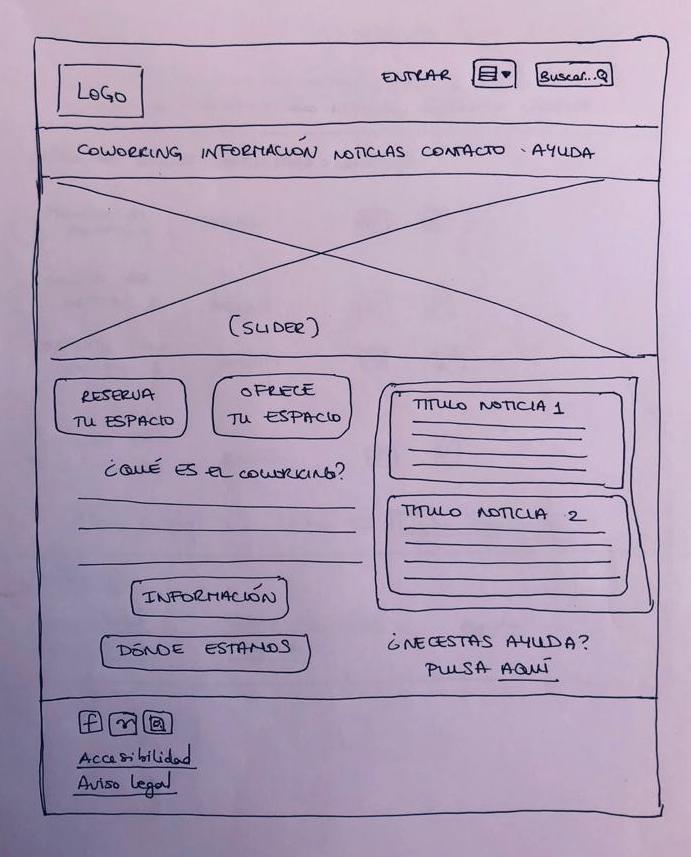 LOGO
ENTRAR
Buscar...
COWORKING INFORMACIÓN NOTICIAS CONTACTO · AYUDA
(SLIDER)
RESERVA
TU ESPACIO
OFRECE
TU ESPACIO
¿QUÉ ES EL COWORKING?
INFORMACIÓN
DÓNDE ESTAMOS
TITULO NOTICIA 1
TITULO NOTICIA 2
¿NECESTAS AYUDA?
PULSA AQUÍ
f
Accesibilidad
Aviso legal